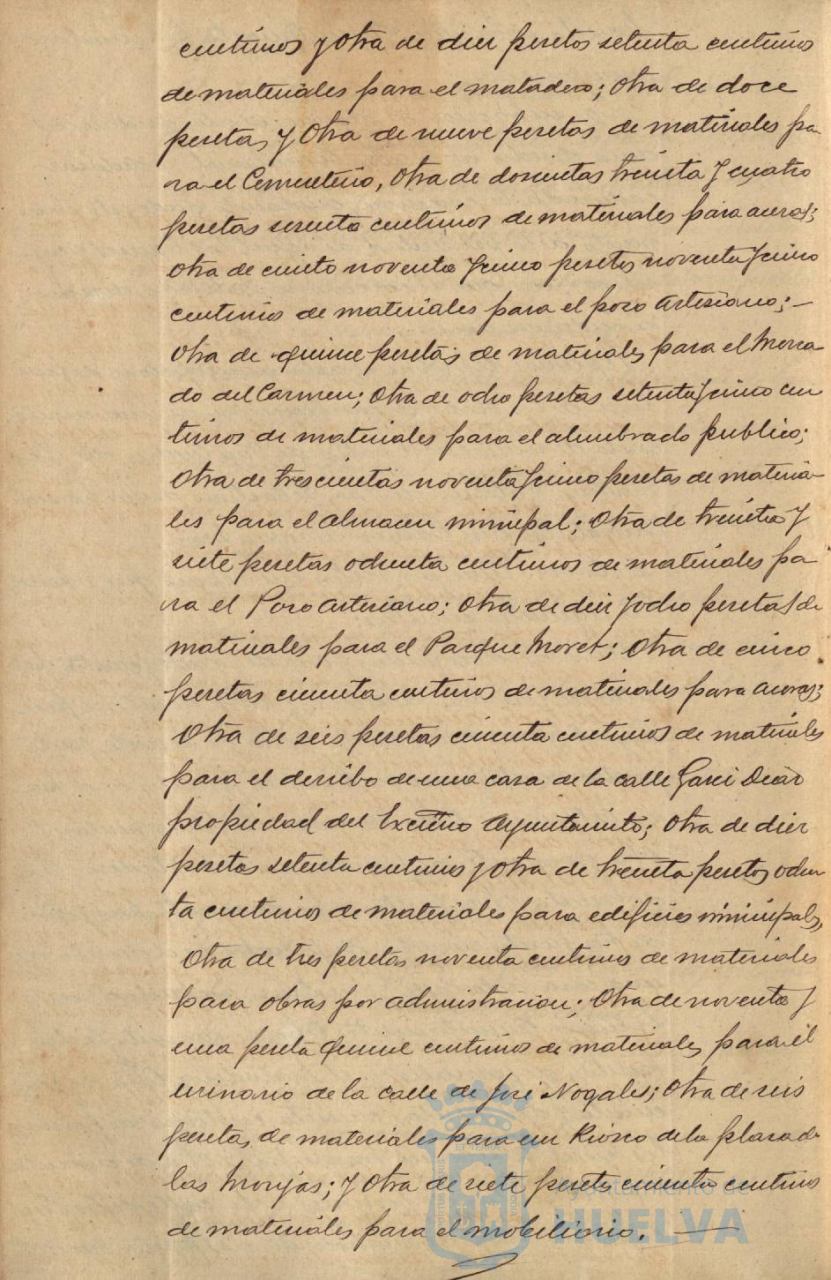 centimos y otra de diez pesetas setenta centimos
de materiales para el matadero; otra de doce
pesetas y otra de nueve pesetas de materiales pa-
ra el Cementerio, otra de doscientas treinta y cuatro
pesetas sesenta centimos de materiales para aceras;
otra de ciento noventa y cinco pesetas noventa y cinco
centimos de materiales para el pozo Artesiano; —
otra de quince pesetas de materiales para el Merca-
do del Carmen; otra de ocho pesetas setenta y cinco cen
timos de materiales para el alumbrado publico;
otra de trescientas noventa y cinco pesetas de materia-
les para el almacen municipal; otra de treinta y
siete pesetas ochenta centimos de materiales pa
ra el Pozo artesiano; otra de diez y ocho pesetas de
materiales para el Parque Moret; otra de cinco
pesetas cincuenta centimos de materiales para aceras;
otra de seis pesetas cincuenta centimos de materiales
para el derribo de una casa de la calle Garci Diaz
propiedad del Excmo Ayuntamiento; otra de diez
pesetas setenta centimos y otra de treinta pesetas ochen
ta centimos de materiales para edificios municipales,
otra de tres pesetas noventa centimos de materiales
para obras por administracion; otra de noventa y
una peseta quince centimos de materiales para el
urinario de la calle de José Nogales; otra de seis
pesetas de materiales para un Kiosco de la plaza de
las Monjas; y otra de siete pesetas cincuenta centimos
de materiales para el mobiliario. —
Ayuntamiento de
HUELVA